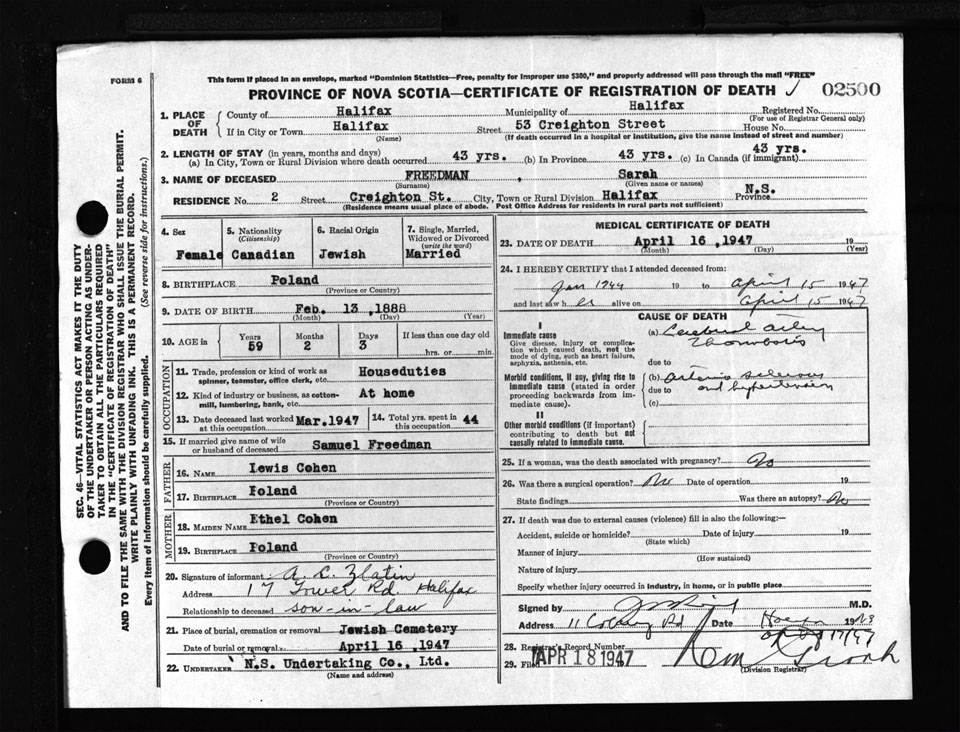 FORM 6
This form if placed in an envelope, marked "Dominion Statistics—Free, penalty for improper use $300," and properly addressed will pass through the mail "FREE"
PROVINCE OF NOVA SCOTIA—CERTIFICATE OF REGISTRATION OF DEATH
02500
1. PLACE OF DEATH
County of Halifax Municipality of Halifax Registered No.
(For use of Registrar General only)
If in City or Town Halifax Street 53 Creighton Street House No.
(Name) (If death occurred in a hospital or institution, give the name instead of street and number)
2. LENGTH OF STAY (in years, months and days)
(a) In City, Town or Rural Division where death occurred 43 yrs. (b) In Province 43 yrs. (c) In Canada (if immigrant) 43 yrs.
3. NAME OF DECEASED FREEDMAN , Sarah
(Surname) (Given name or names)
RESIDENCE No. 2 Street Creighton St. City, Town or Rural Division Halifax Province N.S.
(Residence means usual place of abode. Post Office Address for residents in rural parts not sufficient)
4. Sex Female
5. Nationality (Citizenship) Canadian
6. Racial Origin Jewish
7. Single, Married, Widowed or Divorced (write the word) Married
8. BIRTHPLACE Poland
(Province or Country)
9. DATE OF BIRTH Feb. 13 ,1888
(Month) (Day) (Year)
10. AGE in Years 59 Months 2 Days 3 If less than one day old hrs. or min.
OCCUPATION
11. Trade, profession or kind of work as spinner, teamster, office clerk, etc. Houseduties
12. Kind of industry or business, as cotton-mill, lumbering, bank, etc. At home
13. Date deceased last worked at this occupation Mar.1947
14. Total yrs. spent in this occupation 44
15. If married give name of wife or husband of deceased Samuel Freedman
FATHER
16. NAME Lewis Cohen
17. BIRTHPLACE Poland
(Province or Country)
MOTHER
18. MAIDEN NAME Ethel Cohen
19. BIRTHPLACE Poland
(Province or Country)
20. Signature of informant: A. L. Zlatin
Address 17 Tower Rd. Halifax
Relationship to deceased son-in-law
21. Place of burial, cremation or removal Jewish Cemetery
Date of burial or removal April 16 ,1947
22. UNDERTAKER N.S. Undertaking Co., Ltd.
(Name and address)
MEDICAL CERTIFICATE OF DEATH
23. DATE OF DEATH April 16 ,1947 19
(Month) (Day) (Year)
24. I HEREBY CERTIFY that I attended deceased from:
Jan 1944 19 to April 15 1947
and last saw h er alive on April 15 1947
CAUSE OF DEATH
I
Immediate cause
Give disease, injury or complication which caused death, not the mode of dying, such as heart failure, asphyxia, asthenia, etc.
(a) Cerebral artery Thrombosis
due to
Morbid conditions, if any, giving rise to immediate cause (stated in order proceeding backwards from immediate cause).
(b) Arterio sclerosis and hypertension
due to
(c)
II
Other morbid conditions (if important) contributing to death but not causally related to immediate cause.
25. If a woman, was the death associated with pregnancy? No
26. Was there a surgical operation? No Date of operation 19
State findings Was there an autopsy? No
27. If death was due to external causes (violence) fill in also the following:—
Accident, suicide or homicide? Date of injury 19
(State which)
Manner of injury
(How sustained)
Nature of injury
Specify whether injury occurred in industry, in home, or in public place
Signed by M.D.
Address 11 Rd Date 19
28. Registrar's Record Number
29. Filed APR 18 1947
(Division Registrar)
SEC. 46—VITAL STATISTICS ACT MAKES IT THE DUTY
OF THE UNDERTAKER OR PERSON ACTING AS UNDER-
TAKER TO OBTAIN ALL THE PARTICULARS REQUIRED
IN THE "CERTIFICATE OF REGISTRATION OF DEATH"
AND TO FILE THE SAME WITH THE DIVISION REGISTRAR WHO SHALL ISSUE THE BURIAL PERMIT.
WRITE PLAINLY WITH UNFADING INK. THIS IS A PERMANENT RECORD.
Every item of information should be carefully supplied. (See reverse side for instructions.)